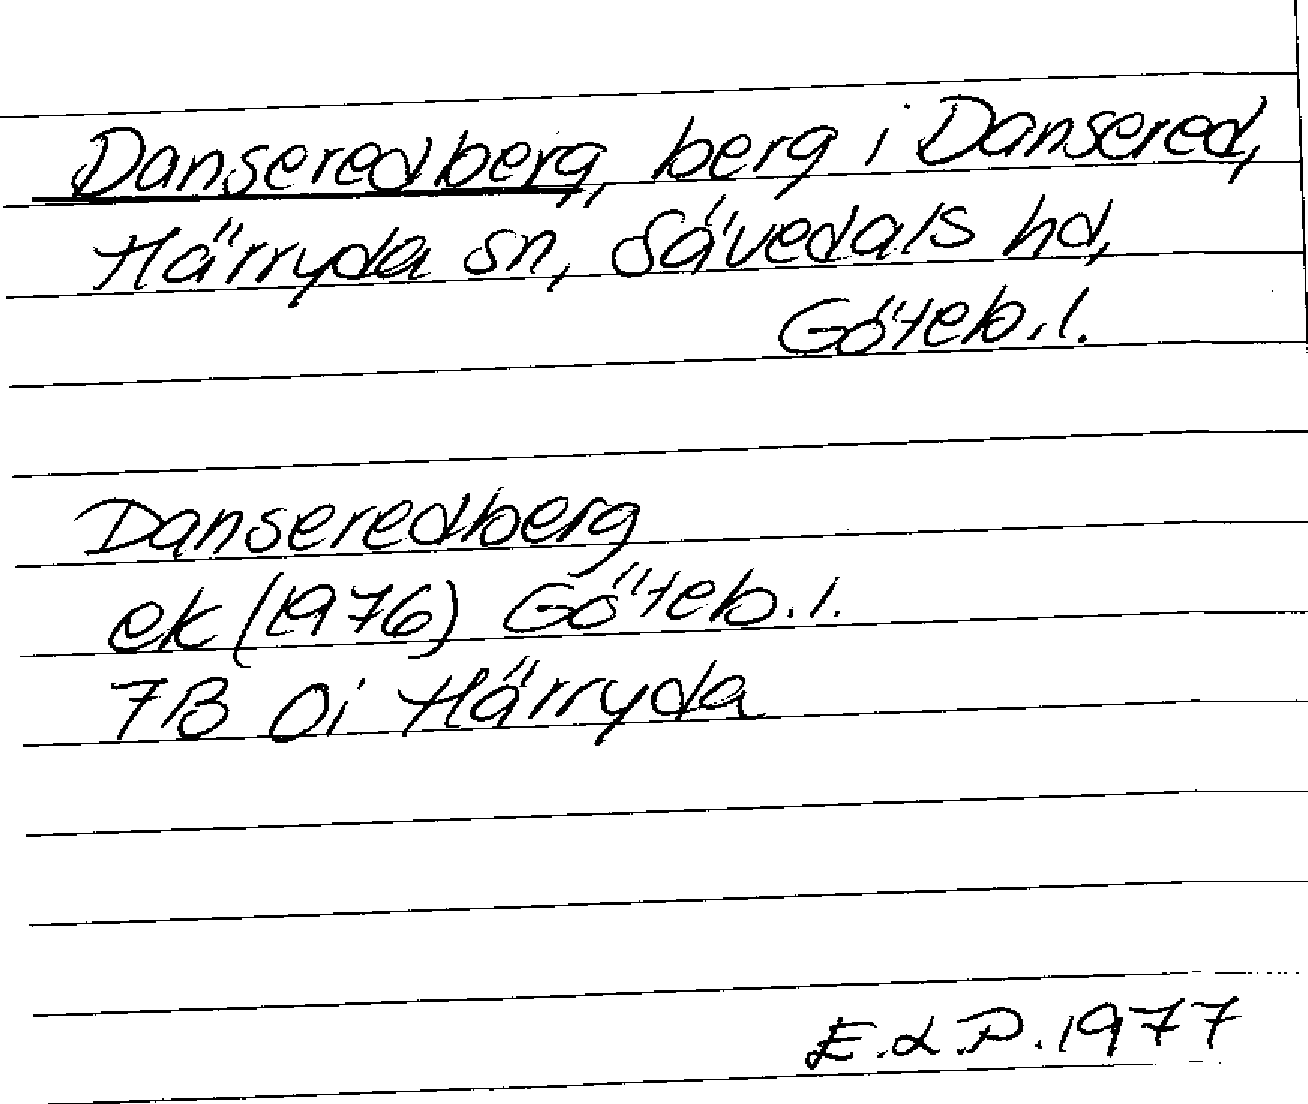 Danseredberg, berg i Dansered,
Härryda sn, Sävedals hd,
Göteb.l.
Danseredberg
ek (1976) Göteb.l.
7B 0i Härryda
E.L.P. 1977